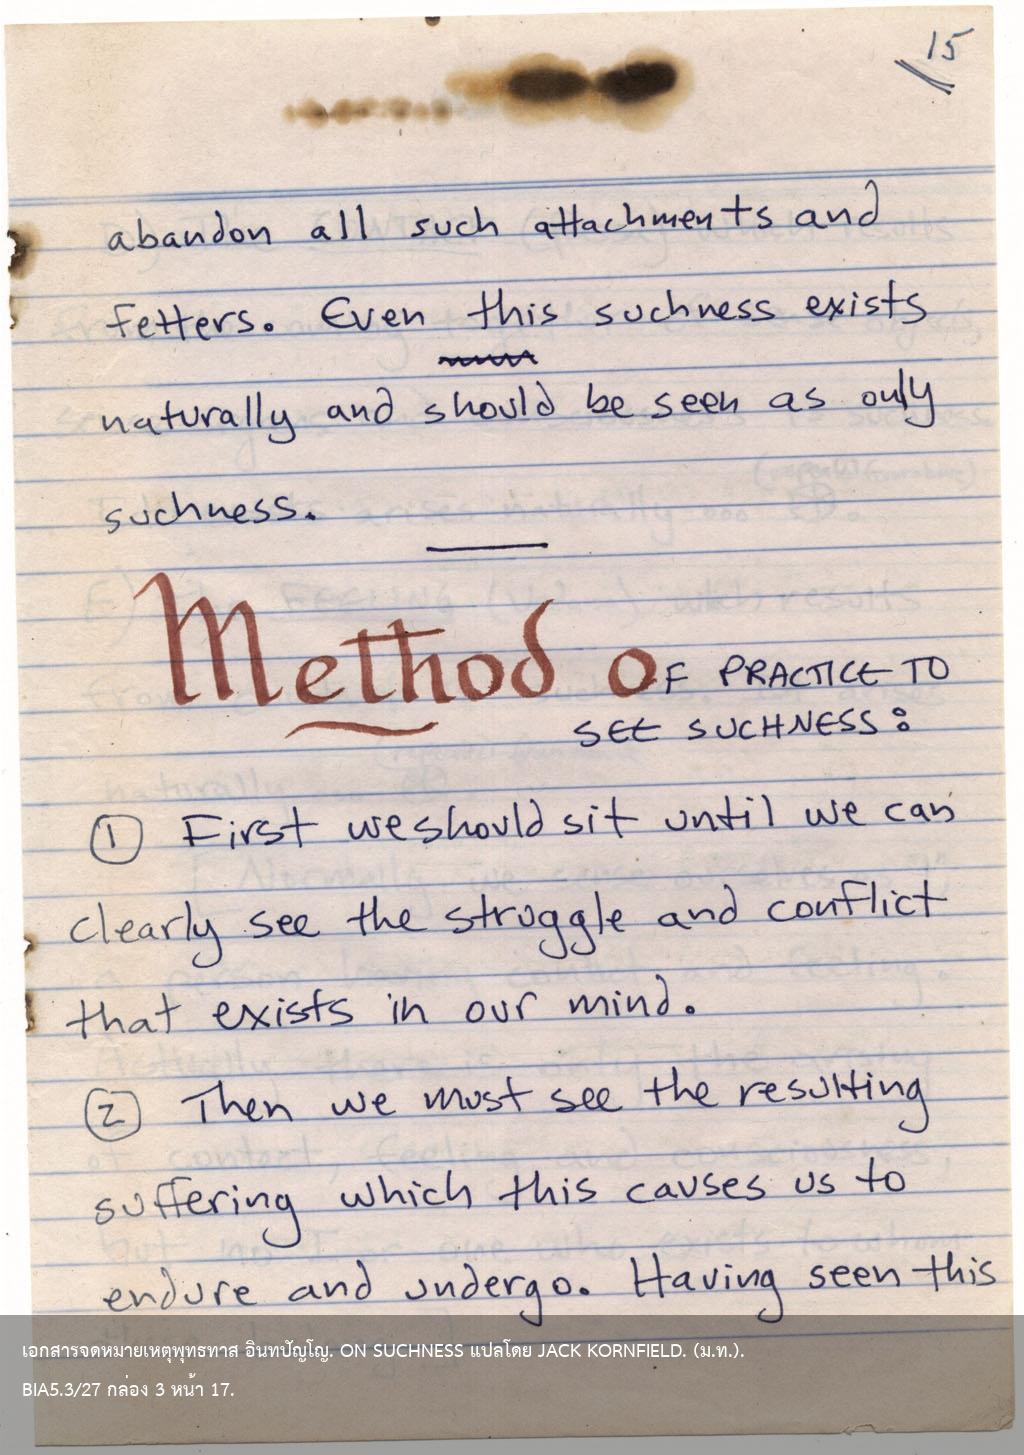 15
abandon all such attachments and
fetters. Even this suchness exists
naturally and should be seen as only
suchness.
Method OF PRACTICE TO
SEE SUCHNESS:
① First we should sit until we can
clearly see the struggle and conflict
that exists in our mind.
② Then we must see the resulting
suffering which this causes us to
endure and undergo. Having seen this
เอกสารจดหมายเหตุพุทธทาส อินทปัญโญ. ON SUCHNESS แปลโดย JACK KORNFIELD. (ม.ท.).
BIA5.3/27 กล่อง 3 หน้า 17.